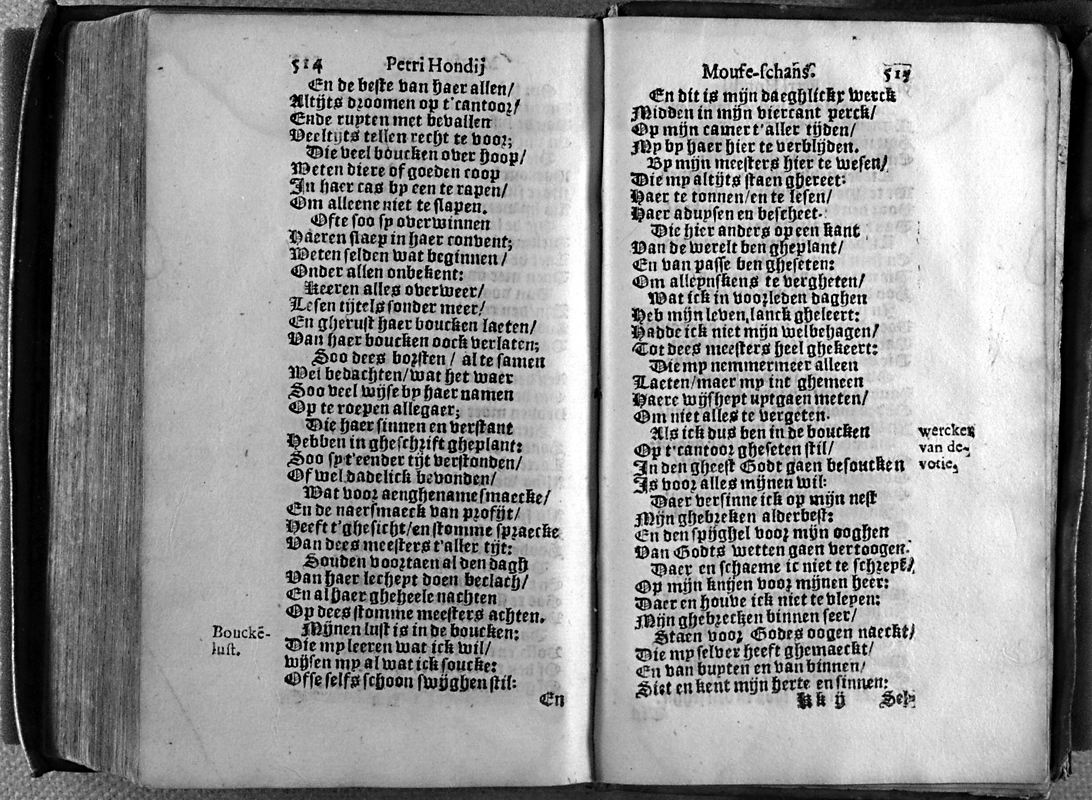 514 Petri Hondij
En de beste van haer allen/
Altijts droomen op t'cantoor/
Ende rupten met bevallen
Veeltijts tellen recht te voor;
Die veel boucken over hoop/
Weten diere of goeden coop
In haer cas by een te rapen/
Om alleene niet te slapen.
Ofte soo sy overwinnen
Haeren slaep in haer convent;
Weten selden wat beginnen/
Onder allen onbekent:
Keeren alles overweer/
Lesen tijtels sonder meer/
En gherust haer boucken laeten/
Van haer boucken oock verlaten;
Soo dees borsten/ al te samen
Wel bedachten/wat het waer
Soo veel wijse by haer namen
Op te roepen allegaer;
Die haer sinnen en verstant
Hebben in gheschrift gheplant:
Soo sy t'eender tijt verstonden/
Of wel dadelick bevonden/
Wat voor aenghename smaecke/
En de naersmaeck van profijt/
Heeft t'ghesicht/en stomme spraecke
Van dees meesters t'aller tijt:
Souden voortaen al den dagh
Van haer lecheyt doen beclach/
En al haer gheheele nachten
Op dees stomme meesters achten.
Boucke-
lust.
Mijnen lust is in de boucken:
Die my leeren wat ick wil/
Wijsen my al wat ick soucke:
Ofse selfs schoon swijghen stil:
En
Mouse-schans. 515
En dit is mijn daeghlickx werck
Midden in mijn viercant perck/
Op mijn camer t'aller tijden/
My by haer hier te verblijden.
By mijn meesters hier te wesen/
Die my altijts staen ghereet:
Haer te tonnen/en te lesen/
Haer aduysen en bescheet.
Die hier anders op een kant
Van de werelt ben gheplant/
En van passe ben gheseten:
Om alleynskens te vergheten/
Wat ick in voorleden daghen
Heb mijn leven lanck gheleert:
Hadde ick niet mijn welbehagen/
Tot dees meesters heel ghekeert:
Die my nemmermeer alleen
Laeten/maer my int ghemeen
Haere wijsheyt uytgaen meten/
Om niet alles te vergeten.
Als ick dus ben in de boucken
Op t'cantoor gheseten stil/
In den gheest Godt gaen besoucken
Is voor alles mijnen wil:
wercken
van de-
votie,
Daer versinne ick op mijn nest
Mijn ghebreken alderbest:
En den spijghel voor mijn ooghen
Van Godts wetten gaen vertoogen.
Daer en schaeme ic niet te schreyē/
Op mijn knijen voor mijnen heer:
Daer en houve ick niet te vleyen:
Mijn ghebrecken binnen seer/
Staen voor Godes oogen naeckt/
Die my selver heeft ghemaeckt/
En van buyten en van binnen/
Siet en kent mijn herte en sinnen:
Kk ij Selv